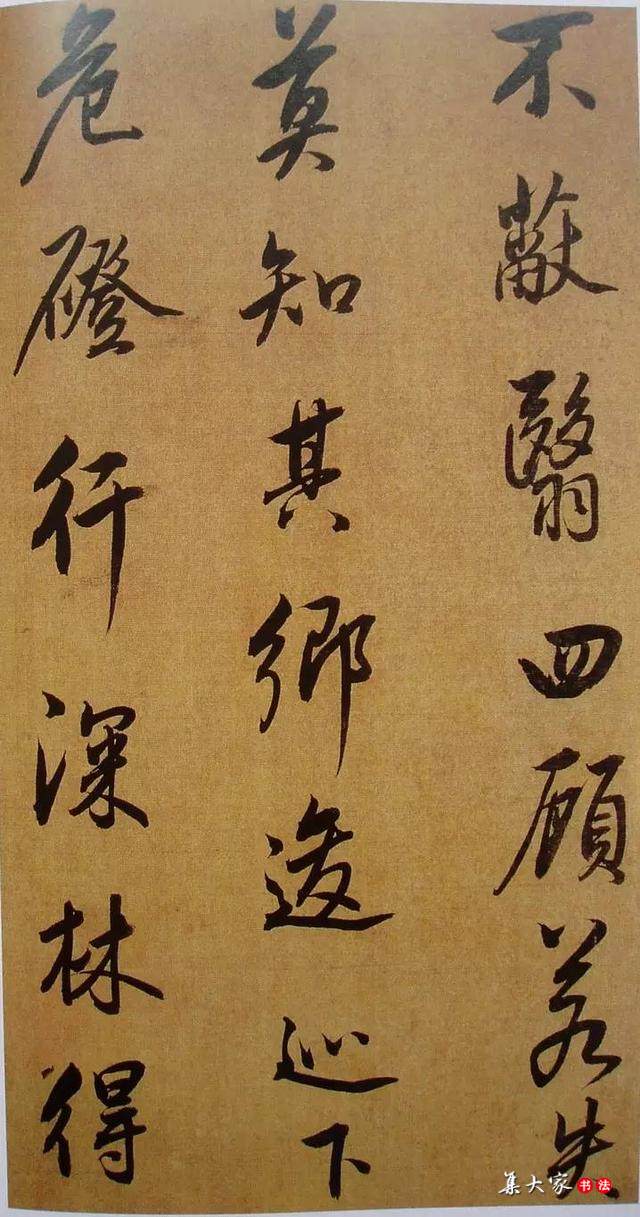 不蔽翳四顾若失
莫知其鄉逡巡下
危磴行深林得
集大家书法